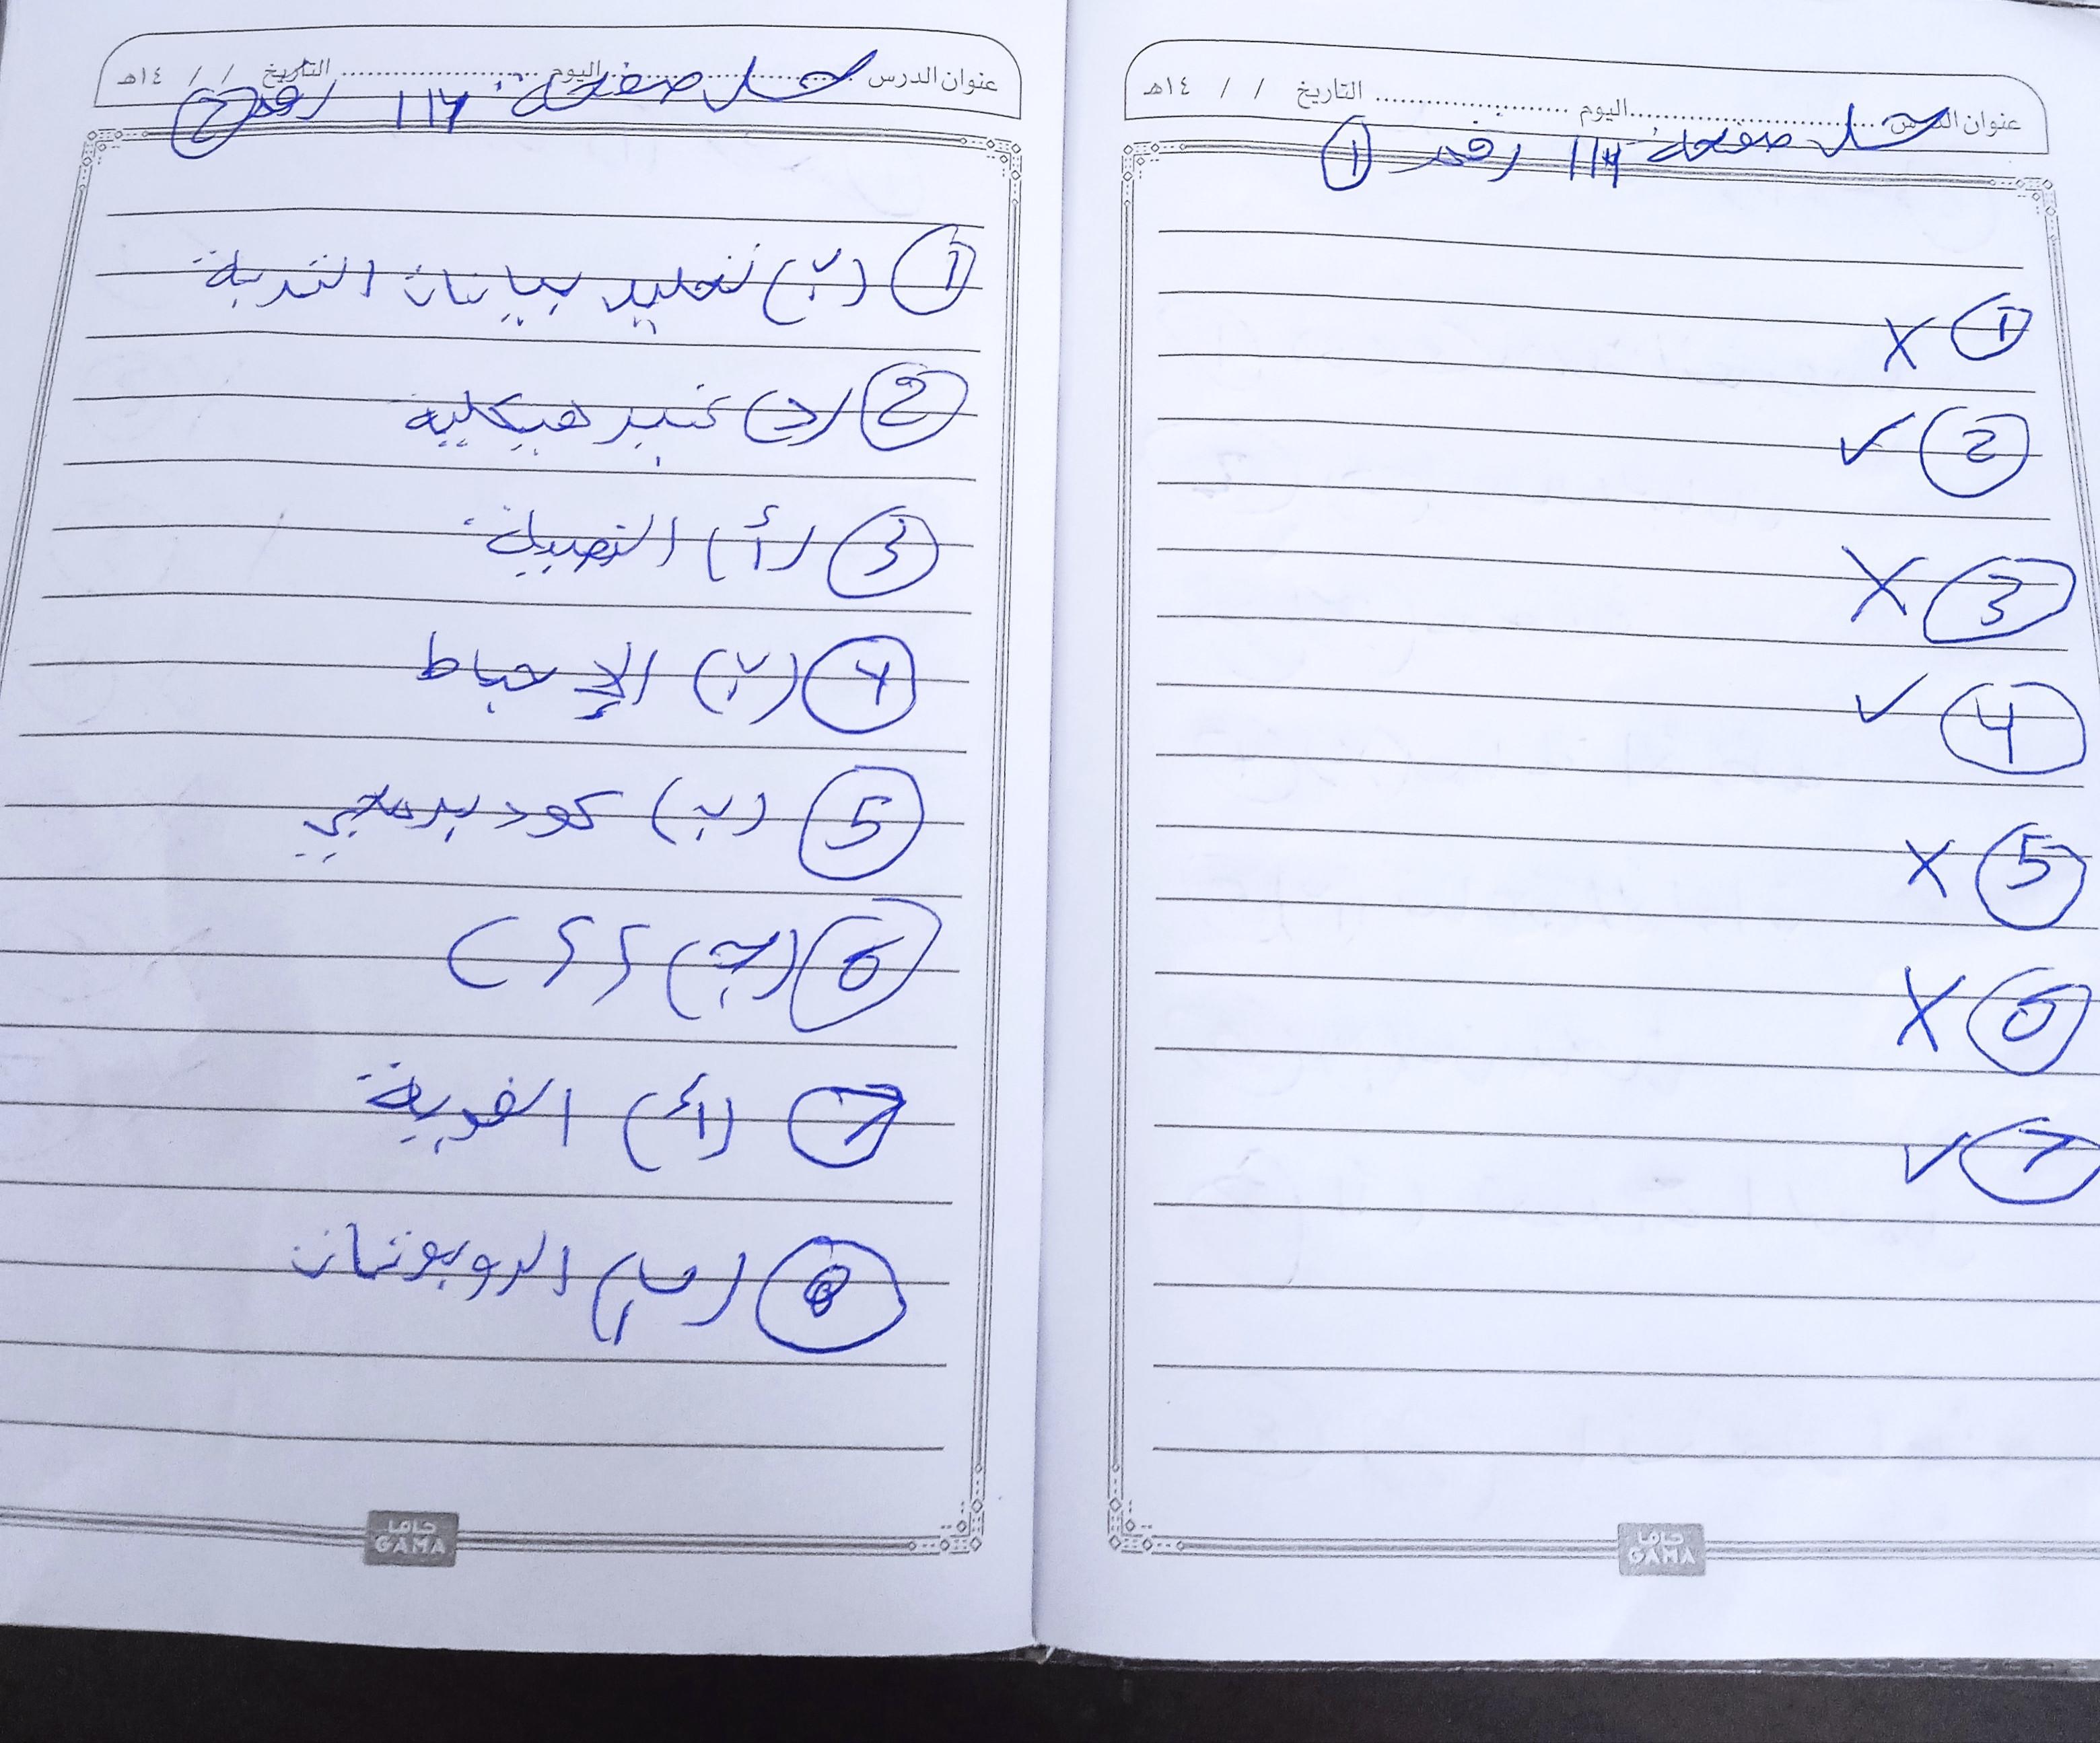 عنوان الدرس ........ اليوم ........ التاريخ / / ١٤هـ
حل صفحة 114 رقم ①
① X
② ✓
③ X
④ ✓
⑤ X
⑥ X
⑦ ✓
جاما
GAMA
عنوان الدرس ........ اليوم ........ التاريخ / / ١٤هـ
حل صفحة 114 رقم
① (ب) تحليل بيانات التربة
② (د) غير هيكلية
③ (أ)
④ (ب) الإحباط
⑤ (ب) كود برمجي
⑥ (ج)
⑦ (أ) الفردية
⑧ (ب) الروبوتات
جاما
GAMA